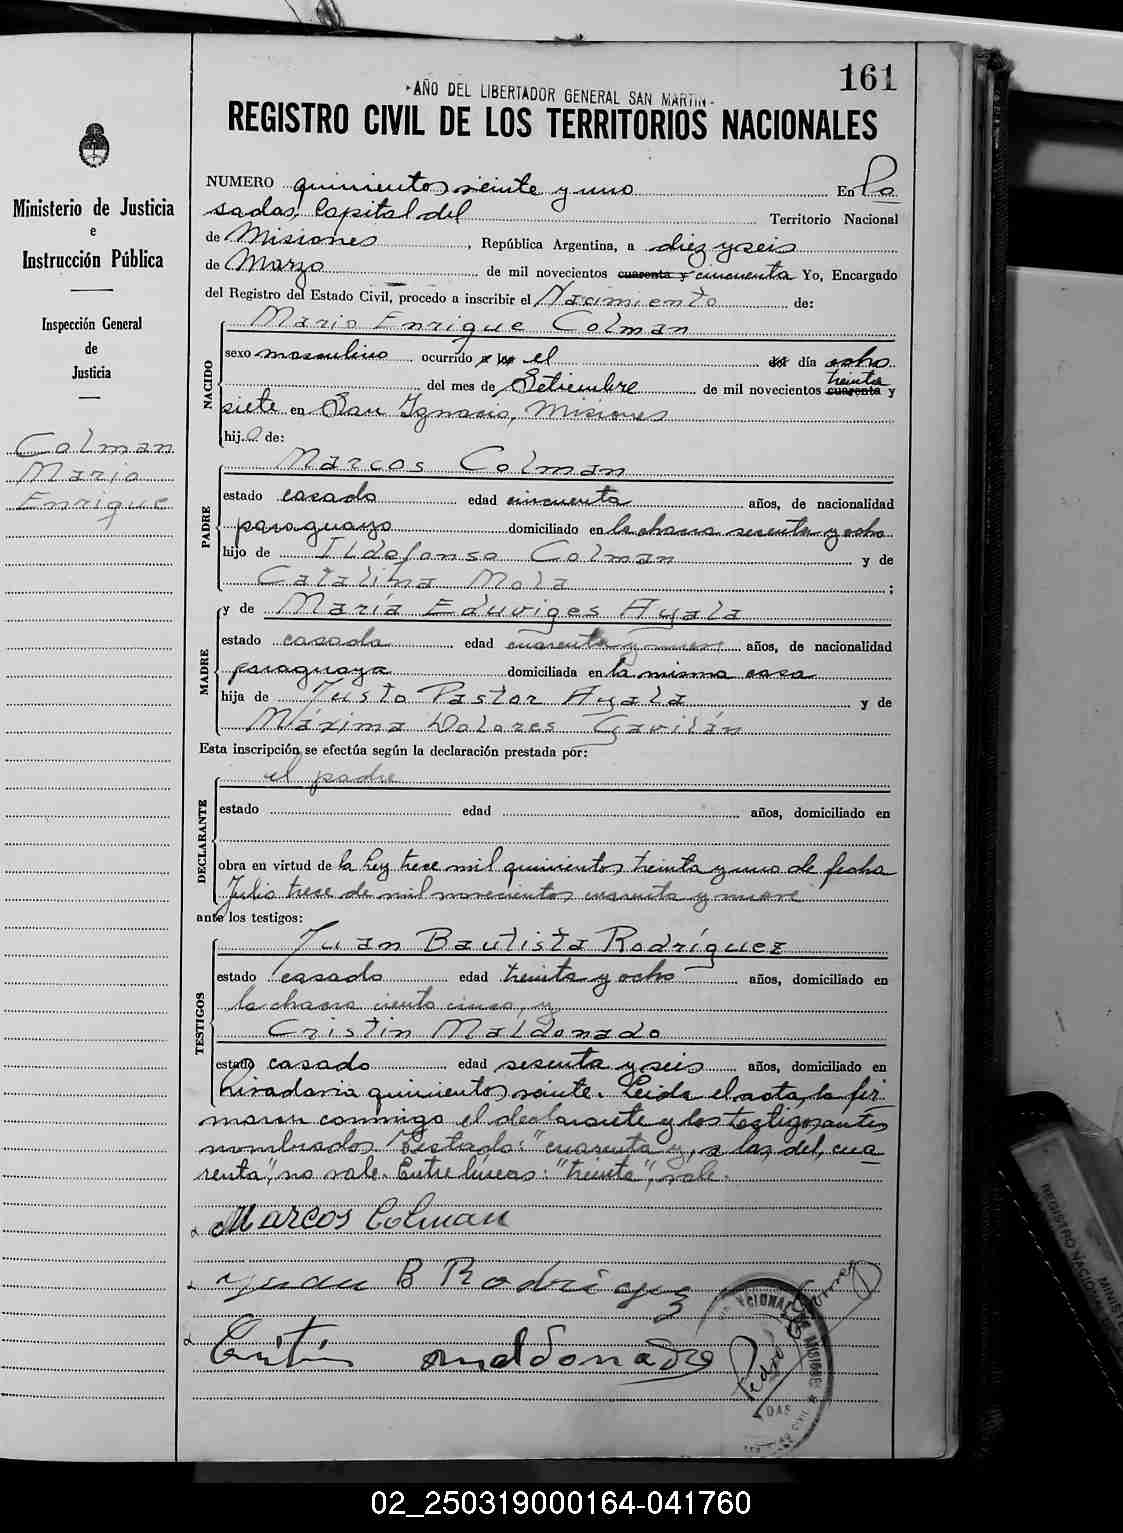 161
AÑO DEL LIBERTADOR GENERAL SAN MARTIN
REGISTRO CIVIL DE LOS TERRITORIOS NACIONALES
Ministerio de Justicia
e
Instrucción Pública
Inspección General
de
Justicia
Colman
Mario
Enrique
NUMERO quinientos veinte y uno En Po
sadas, Capital del Territorio Nacional
de Misiones, República Argentina, a diez y seis
de Marzo de mil novecientos cuarenta y cincuenta Yo, Encargado
del Registro del Estado Civil, procedo a inscribir el Nacimiento de:
NACIDO
Mario Enrique Colman
sexo masculino ocurrido a las el del día ocho
del mes de Setiembre de mil novecientos cuarenta treinta y
siete en San Ignacio, Misiones
hijo de:
PADRE
Marcos Colman
estado casado edad cincuenta años, de nacionalidad
paraguayo domiciliado en la chacra sesenta y ocho
hijo de Ildefonso Colman y de
Catalina Mola ;
MADRE
y de María Eduviges Ayala
estado casada edad cuarenta y nueve años, de nacionalidad
paraguaya domiciliada en la misma casa
hija de Justo Pastor Ayala y de
Máxima Dolores Gavilán
Esta inscripción se efectúa según la declaración prestada por:
DECLARANTE
el padre
estado edad años, domiciliado en
obra en virtud de la Ley trece mil quinientos treinta y uno de fecha
Julio trece de mil novecientos cuarenta y nueve
ante los testigos:
TESTIGOS
Juan Bautista Rodríguez
estado casado edad treinta y ocho años, domiciliado en
la chacra ciento cinco, y
Cristin Maldonado
estado casado edad sesenta y seis años, domiciliado en
Rivadavia quinientos veinte. Leida el acta, la fir
maron conmigo el declarante y los testigos antes
nombrados. Testado: "cuarenta y, a las, del, cua
renta", no vale. Entre líneas: "treinta", vale.
Marcos Colman
Juan B Rodriguez
Cristin Maldonado
Pedro
REGISTRO NACIONAL
MINISTE
02_250319000164-041760